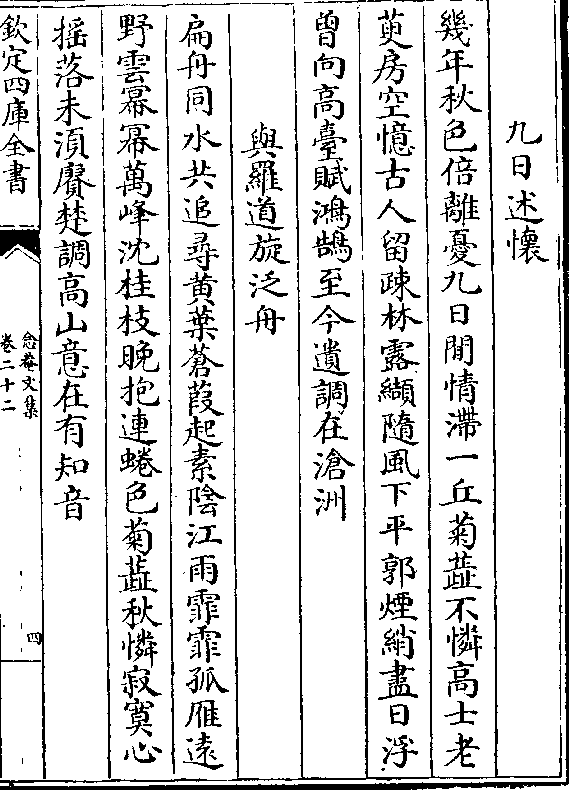 九日述懷
幾年秋色倍離憂九日閒情滯一丘菊蘂不憐高士老
萸房空憶古人留疎林露纈隨風下平郭煙綃盡日浮
曾向高臺賦鴻鵠至今遺調在滄洲
與羅道旋泛舟
扁舟同水共追尋黄葉蒼葭起素陰江雨霏霏孤雁逺
野雲冪冪萬峰沈桂枝晚抱連蜷色菊蘂秋憐寂寞心
摇落未湏賡楚調高山意在有知音
欽定四庫全書
愈菴文集
卷二十二
四